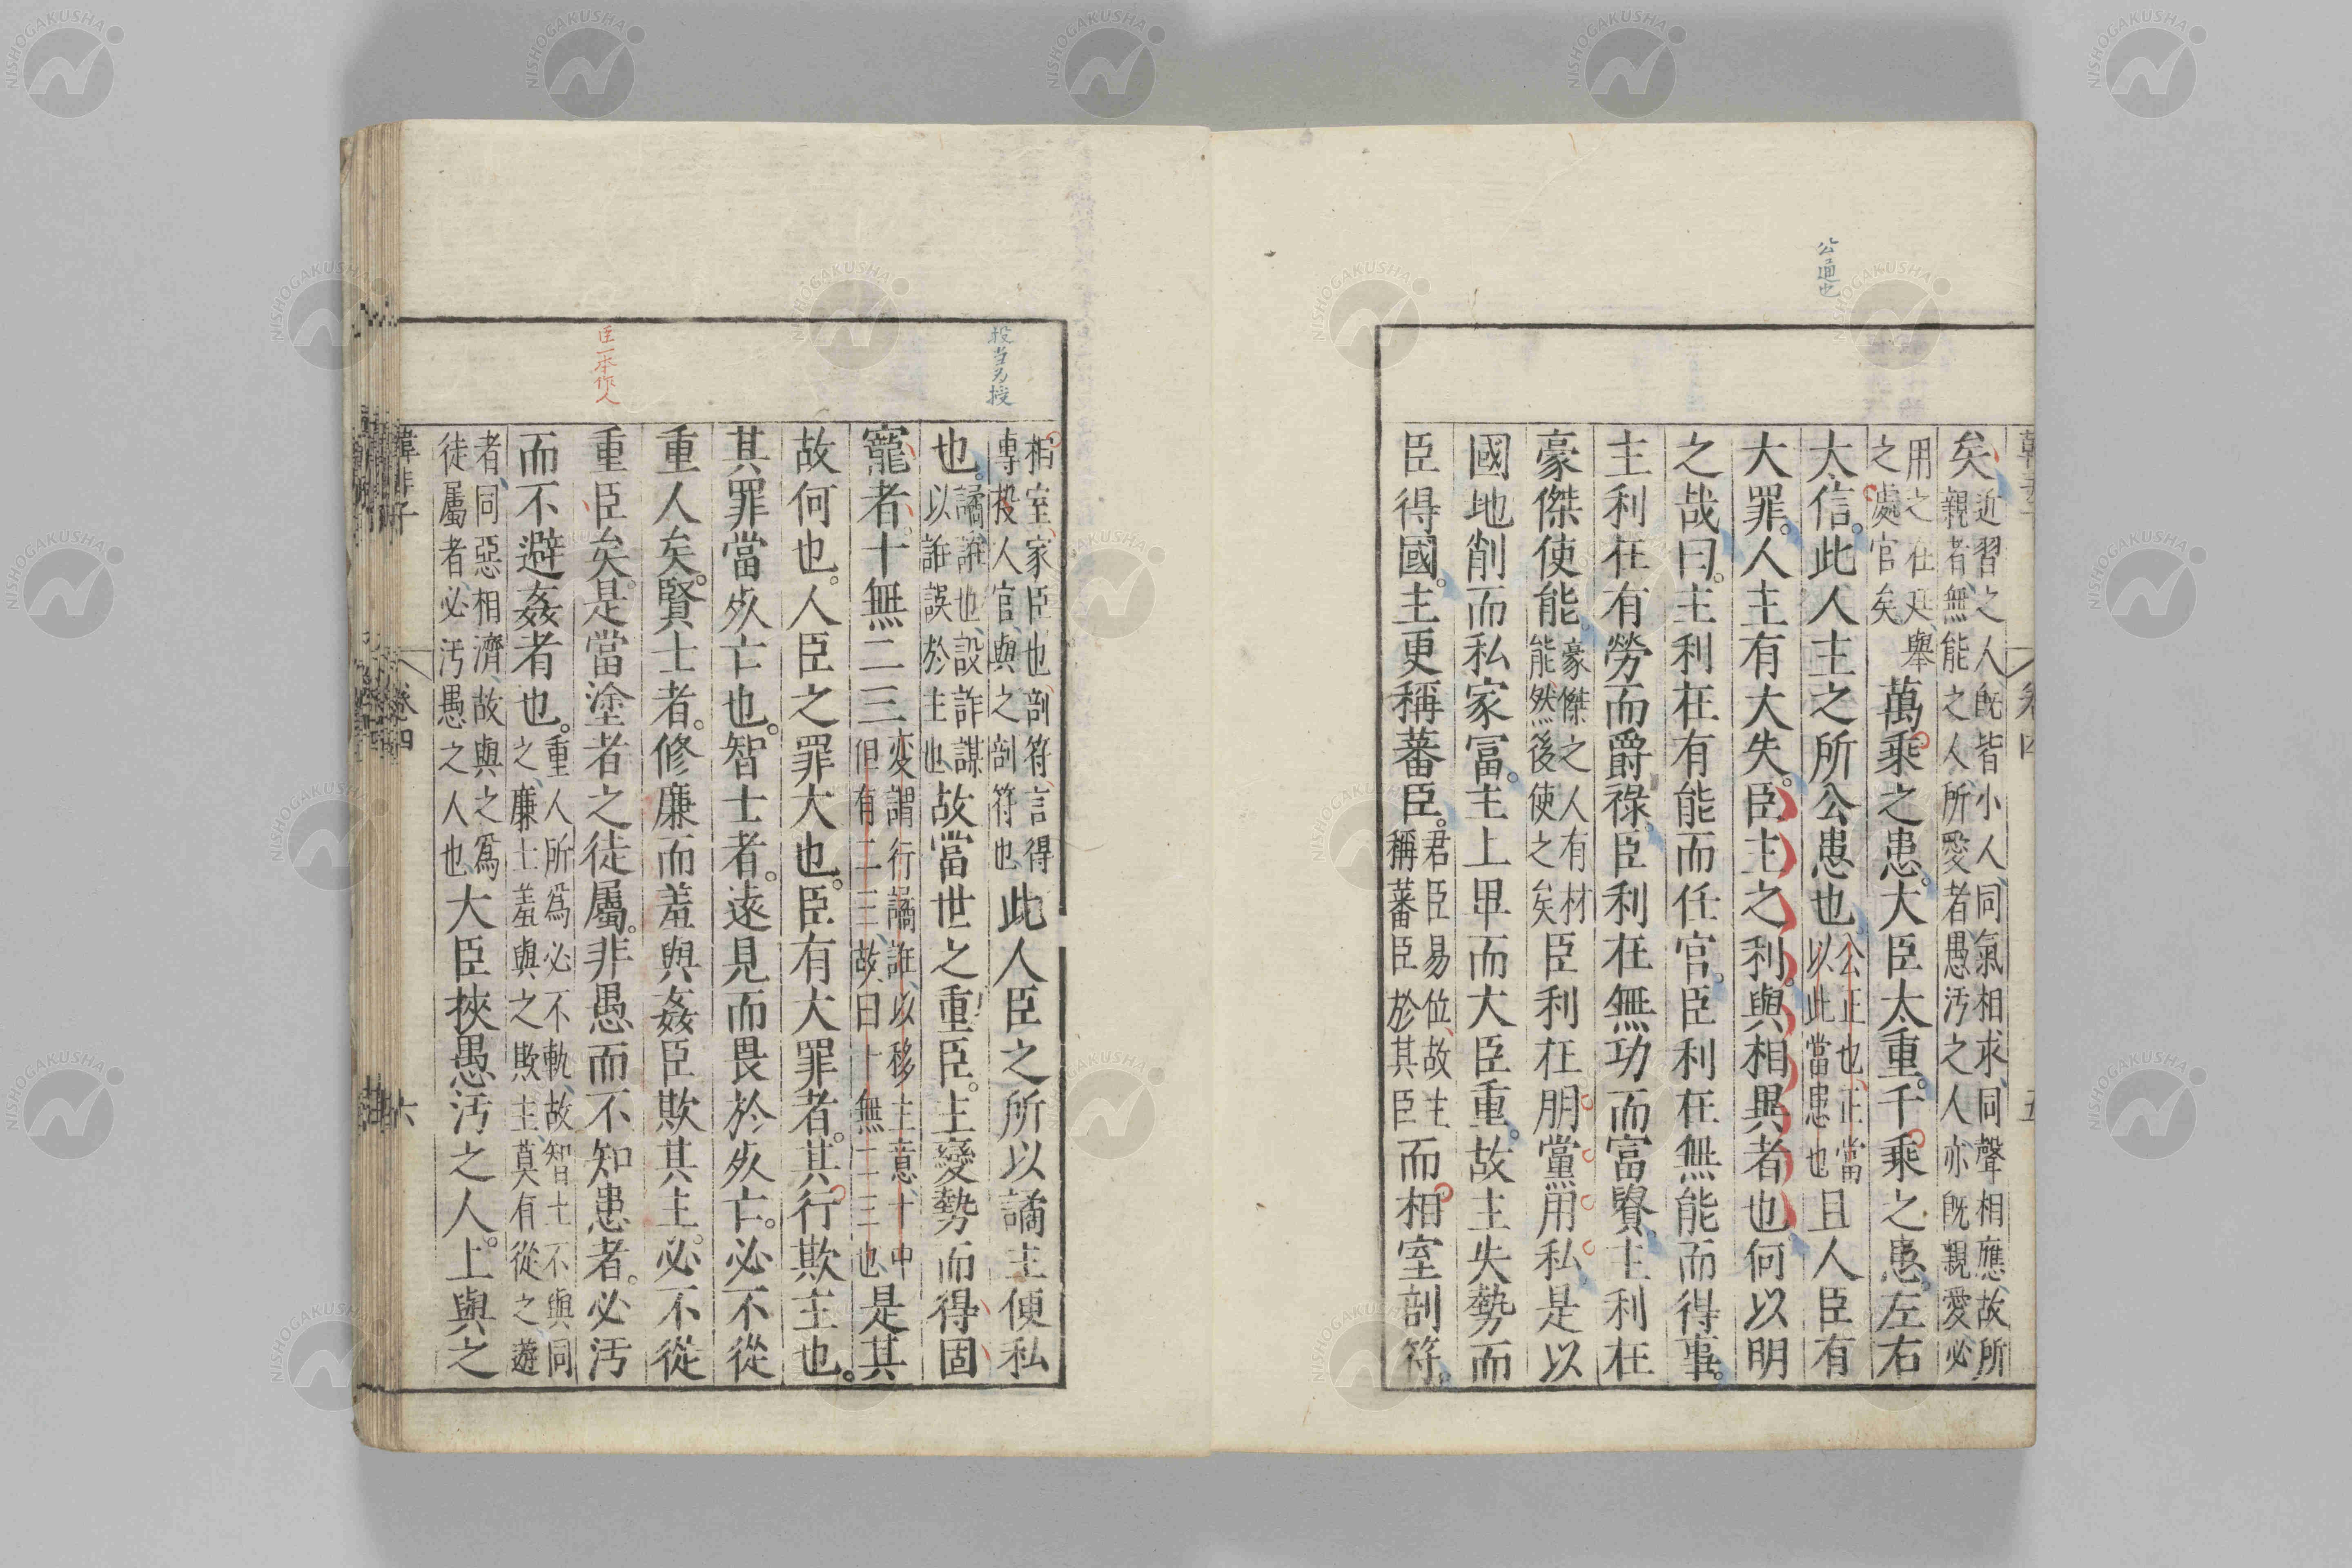 公通也
矣近習之人既皆小人同氣相求同聲相應故所
親者無能之人所愛者愚汚之人亦既親愛必
用之在廷擧
之處官矣萬乘之患大臣太重千乘之患左右
太信此人主之所公患也公正也正當
以此當患也且人臣有
大罪人主有大失臣主之利與相異者也何以明
之哉曰主利在有能而任官臣利在無能而得事
主利在有勞而爵祿臣利在無功而富貴主利在
豪傑使能豪傑之人有材
能然後使之矣臣利在朋黨用私是以
國地削而私家富主上卑而大臣重故主失勢而
臣得國主更稱蕃臣君臣易位故主
稱蕃臣於其臣而相室剖符
投当为授
相室家臣也剖符言得
專投人官與之剖符也此人臣之所以譎主便私
也譎誑也設詐謀
以誑誤於主也故當世之重臣主變勢而得固
寵者十無二三変謂行譎誑以移主意十中
但有二三故曰十無二三也是其
故何也人臣之罪大也臣有大罪者其行欺主也
其罪當死亡也智士者遠見而畏於死亡必不從
重人矣賢士者修廉而羞與姦臣欺其主必不從
臣一本作人
重臣矣是當塗者之徒屬非愚而不知患者必汚
而不避姦者也重人所爲必不軌故智士不與同
之廉士羞與之欺主莫有從之遊
者同惡相濟故與之爲
徒屬者必汚愚之人也大臣挾愚汚之人上與之
韓非子 卷四 六